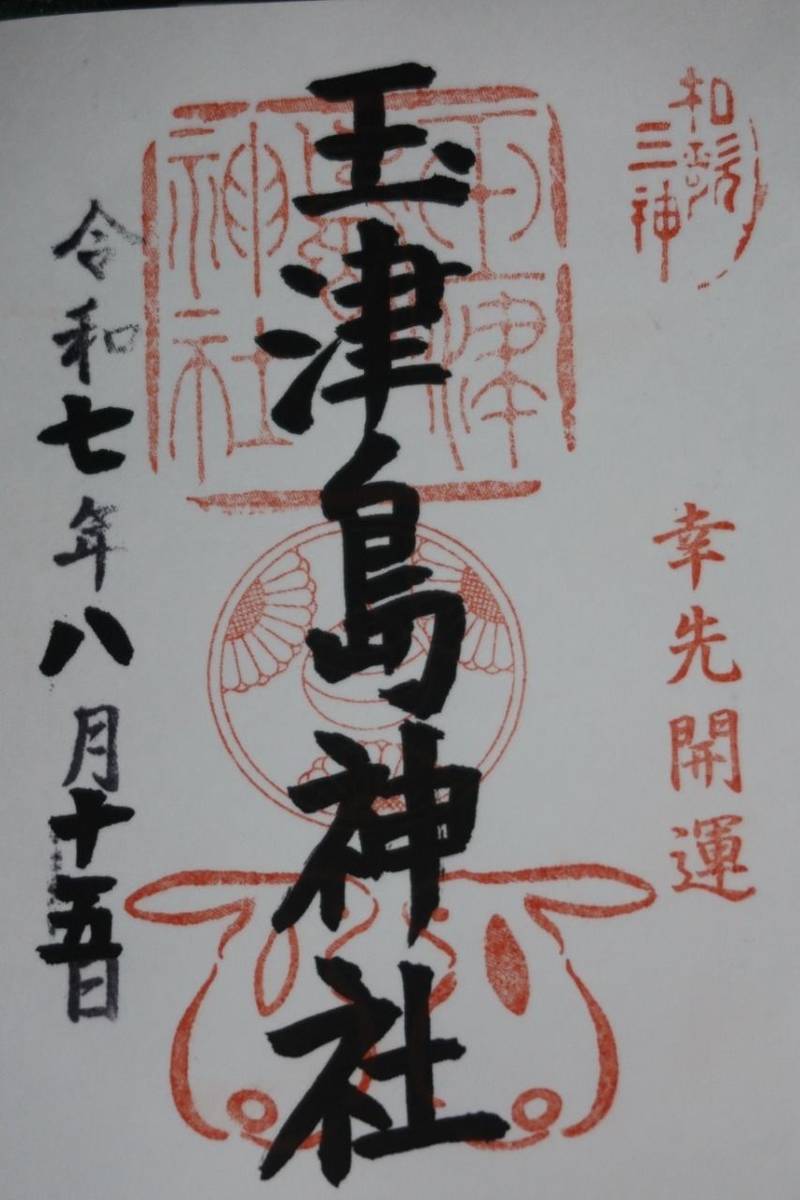 和歌
三神
幸先開運
玉津島神社
玉津
島
神社
令和七年八月十五日